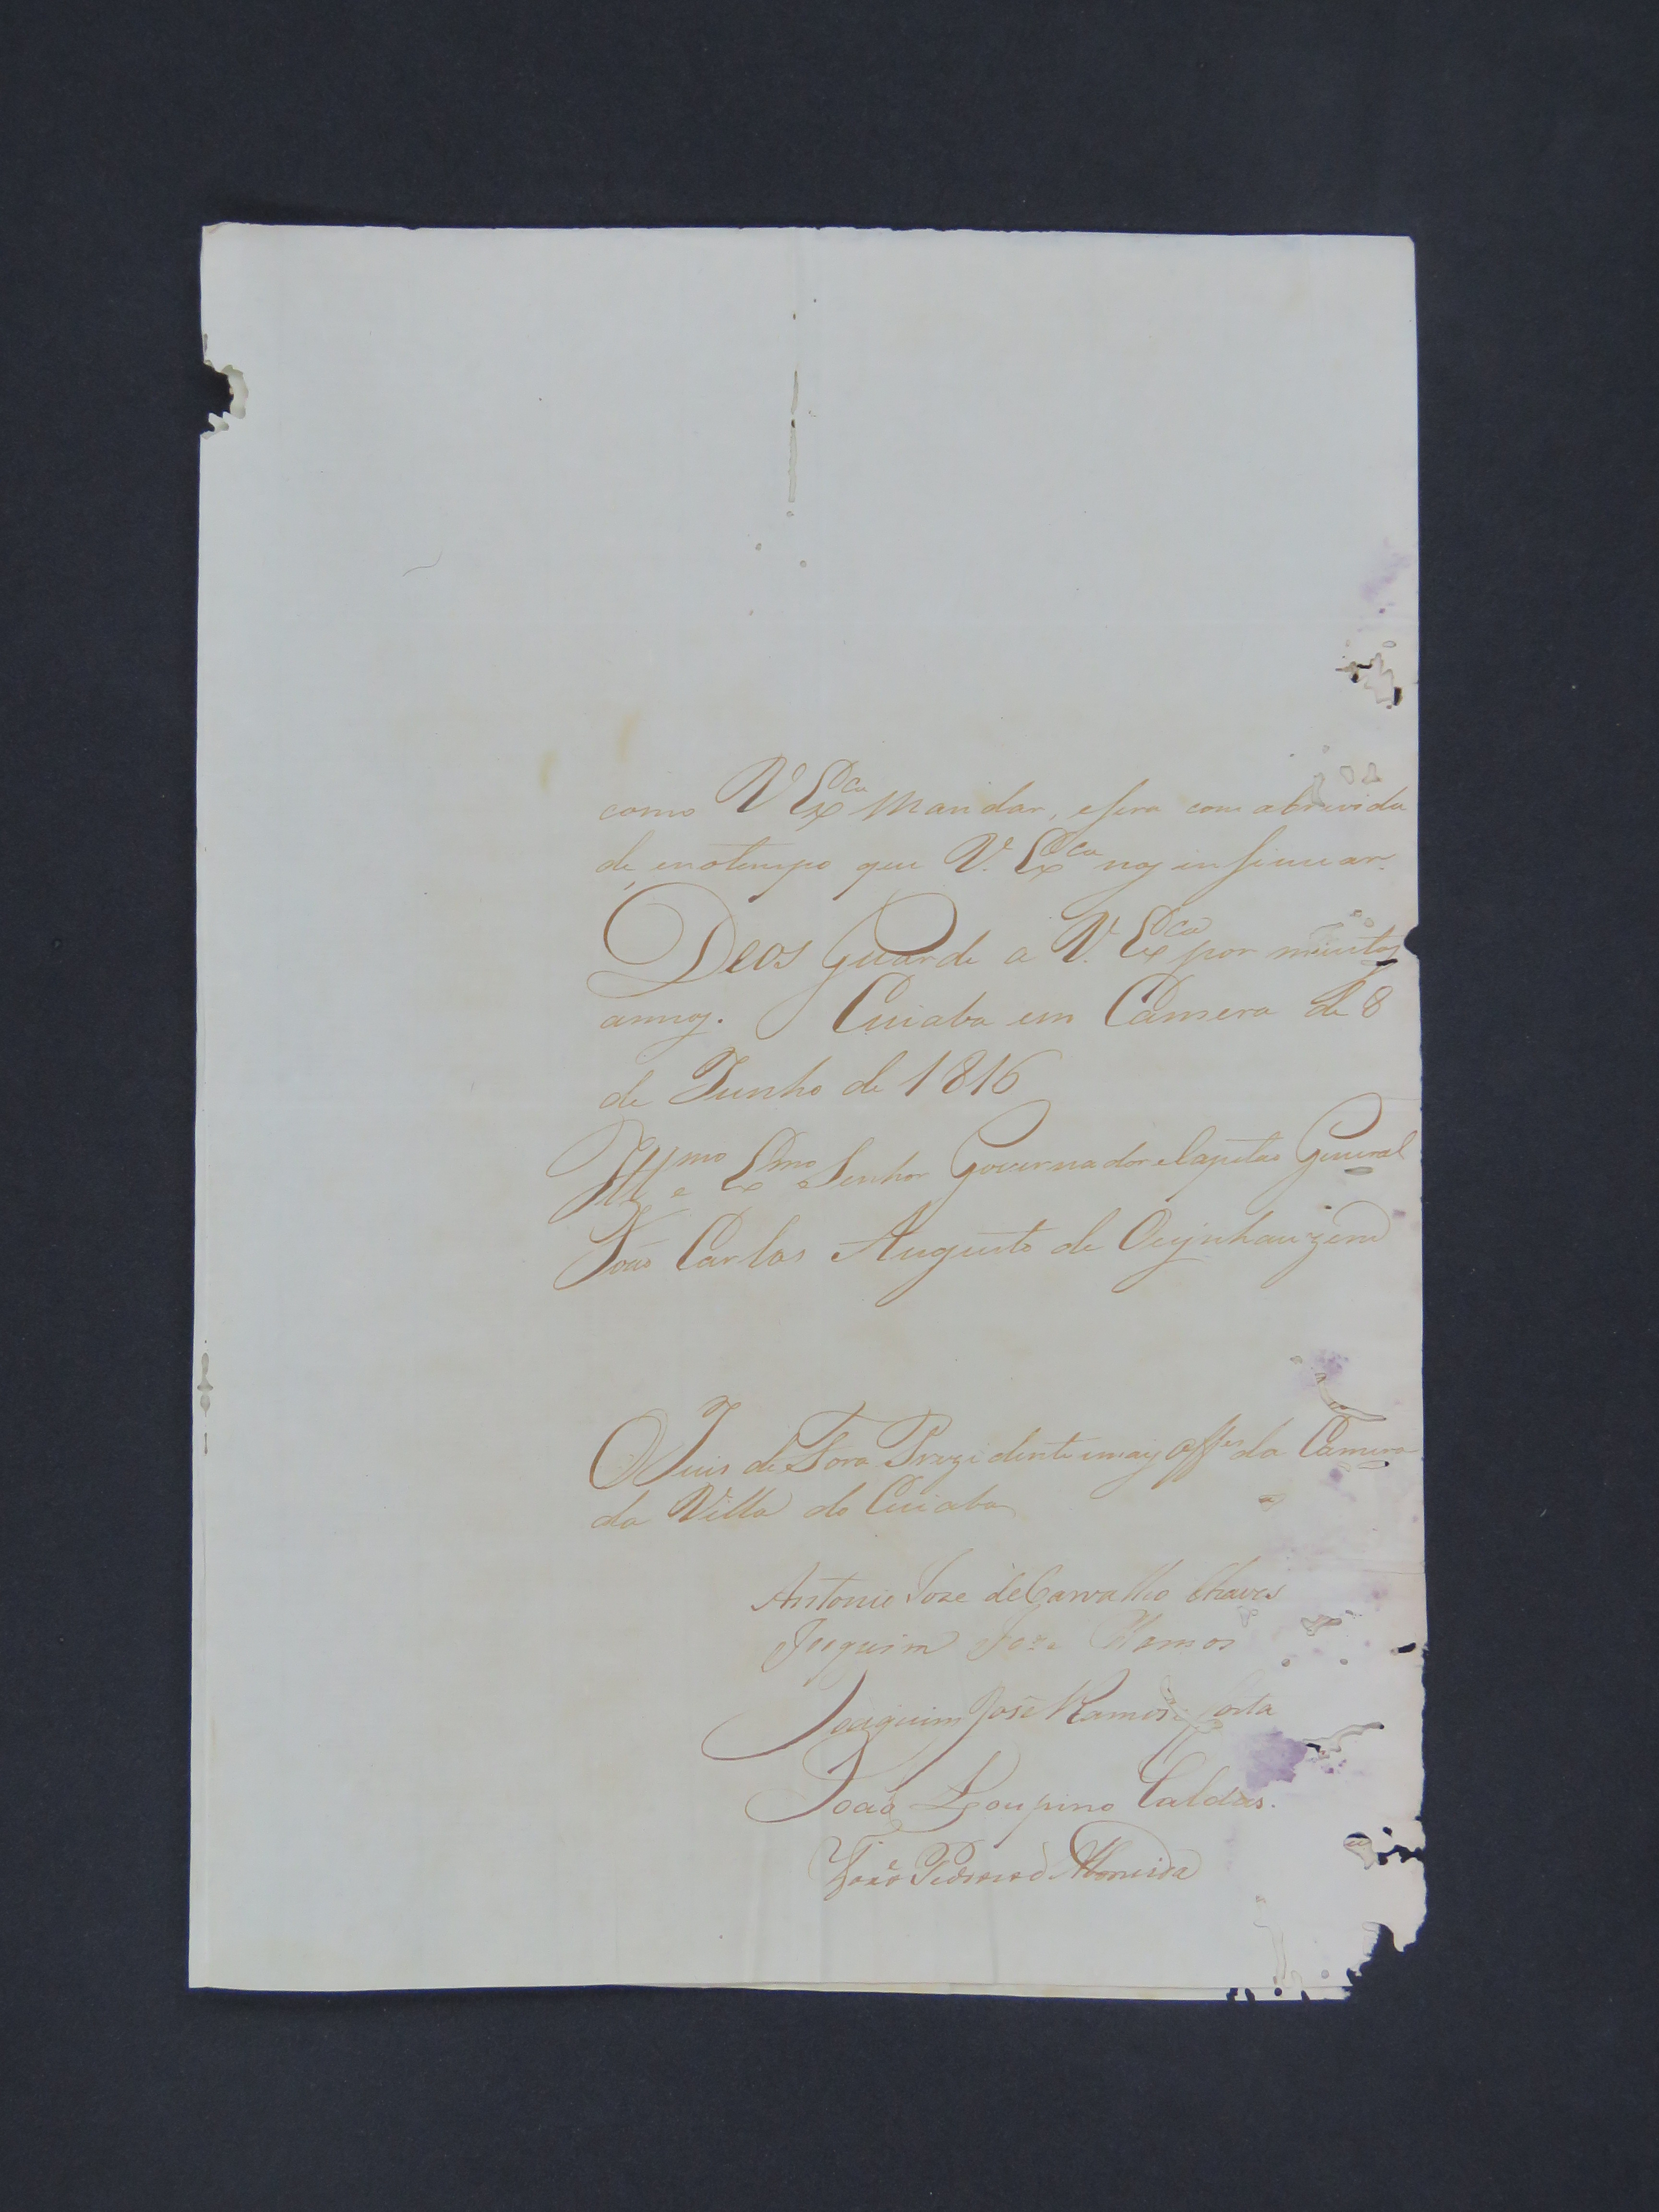 como V Ex.ca Mandar, e sera com abrivida
de, enotempo que V. Ex.ca nos insinuar.
Deos Guarde a V. Ex.ca por muitos
annos. Cuiaba em Camera de 8
de Junho de 1816
Ill.mo e Ex.mo Senhor Governador e Capitão General
João Carlos Augusto de Oeynhauzend
O Juis de Fora Prezidente emais Off.es da Camera
da Villa do Cuiaba
Antonio Joze de Carvalho Chaves
Joaquim Joze Ramos
Joaquim José Ramos e Costa
João Poupino Caldas.
João Almeida